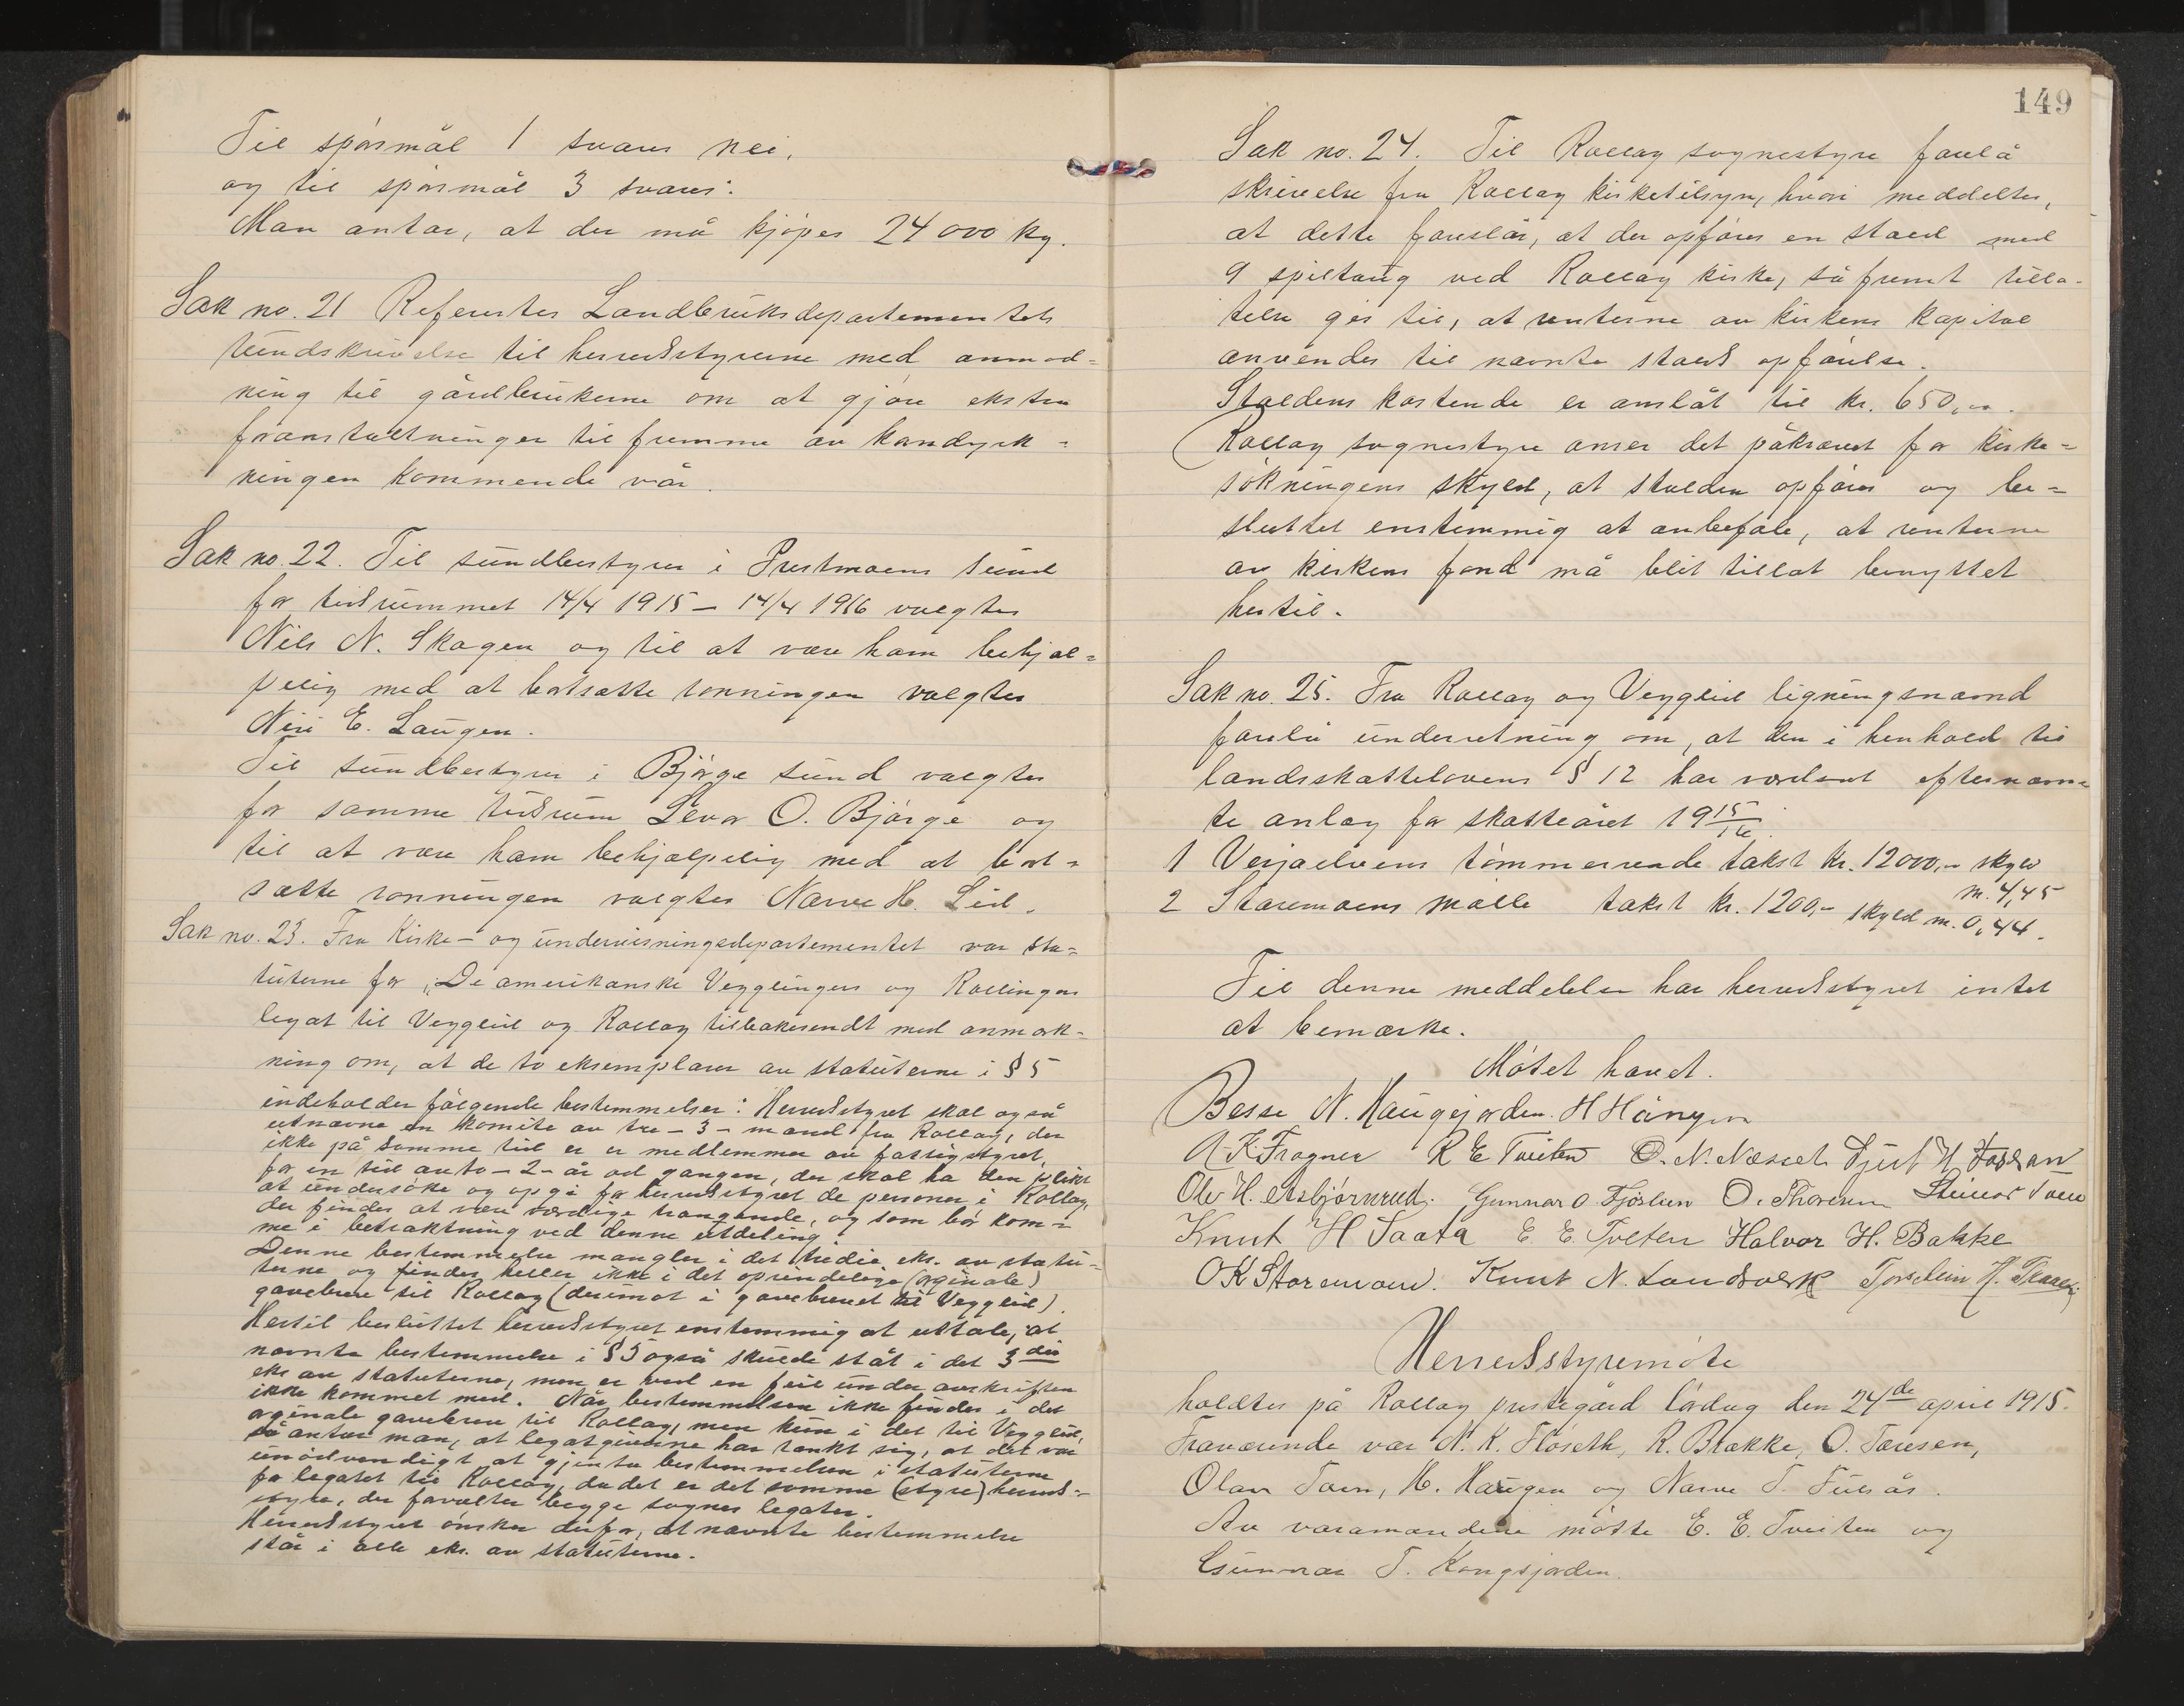 Til spørsmål 1 svares nei,
og til spørsmål 3 svares:
Man antar, at der må kjøpes 24000 kg.
Sak no. 21 Refereertes Landbruksdepartementets
rundskrivelse til herredsstyrerne med anmod=
ning til gårdbrukerne om at gjøre ekstra
foranstaltninger til fremme av korndyrk=
ningen kommende vår.
Sak no. 22. Til sundbestyrer i Prestmoens sund
for tidsrummet 14/4 1915 – 14/4 1916 valgtes
Nils N. Skogen og til at være ham behjæl=
pelig med at bortsætte roningen valgtes
Niri E. Laugen.
Til sundbestyrer i Bjørge sund valgtes
for samme tidsrum Levor O. Bjørge og
til at være ham behjælpelig med at bort=
sætte roningen valgtes Narve H. Lid.
Sak no. 23. Fra Kirke- og undervisningsdepartementet var sta=
tuterne for „De amerikanske Vegglingers og Rollingers
legat til Vegglid og Rollag tilbakesendt med anmærk=
ning om, at de to eksemplarer av statuterne i § 5
indeholder følgende bestemmelser: Herredsstyret skal også
utnævne en komite av tre – 3 – mænd fra Rollag, der
ikke på samme tid er medlemmer av fattigstyret,
for en tid av to – 2 – år ad gangen, der skal ha den plikt
at undersøke og opgi for herredsstyret de personer i Rollag,
der findes at være værdige trængende, og som bør kom=
me i betraktning ved denne utdeling.
Denne bestemmelse mangler i det tredie eks. av statu=
terne og findes heller ikke i det oprindelige (orginale)
gavebrev til Rollag (derimot i gavebrevet til Vegglid).
Hertil besluttet herredsstyret enstemmig at uttale, at
nævnte bestemmelse i § 5 også skulde ståt i det 3die
eks av statuterne, men er ved en feil under avskriften
ikke kommet med. Når bestemmelsen ikke findes i det
orginale gavebrev til Rollag, men kun i det til Vegglid,
så antar man, at legatgiverne har tænkt sig, at det var
unødvendigt at gjenta bestemmelsen i statuterne
for legatet til Rollag, da det er det samme (styre) herreds=
styre, der forvalter begge sognes legater.
Herredsstyret ønsker derfor, at nævnte bestemmelse
står i alle eks. av statuterne.
149
Sak no. 24. Til Rollag sognestyre forelå
skrivelse fra Rollag kirketilsyn, hvori meddeltes,
at dette foreslår, at der opføres en stald med
9 spiltaug ved Rollag kirke, såfremt tilla-
telse gis til, at renterne av kirkens kapital
anvendes til nævnte stalds opførelse.
Staldens kostende er anslåt til kr. 650,00.
Rollag sognestyre anser det påkrævet for kirke=
søkningens skyld, at stalden opføres og be=
sluttet enstemmig at anbefale, at renterne
av kirkens fond må blit tillat benyttet
hertil.
Sak no. 25. Fra Rollag og Vegglid ligningsnævnd
forelå underretning om, at den i henhold til
landsskattelovens § 12 har værdsat efternævn
te anlæg for skatteåret 1915/16.
1 Verjaelvens tømmerrende takst kr. 12000,– skyld
m. 4,45
2 Staremoens mølle takst kr. 1200,– skyld m. 0,44.
Til denne meddelelse har herredsstyret intet
at bemærke.
Møtet hævet.
Besse N. Haugejorden. H Haugen
A K. Fragner R E Tveiten O. N. Næseth
Ole H. Asbjørnrud. Gunnar O. Fjøslien O. Thoresen Steinar Toen
Knut H Saata E E Tveten Halvor H. Bakke
O K Staremoen. Knut N. Landsverk Torstein H.
Herredsstyremøte
holdtes på Rollag prestegård lørdag den 24de april 1915.
Fraværende var N. K. Fløseth, R. Brække, O. Toresen,
Olav Toen, H. Haugen og Narve T. Fulsås.
Av varamændene møtte E. E. Tveiten og
Gunnar T. Kongsjorden.